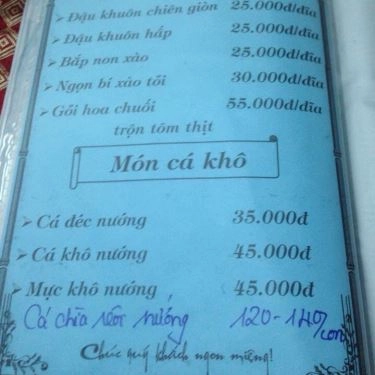 ➤ Đậu khuôn chiên giòn 25.000đ/dĩa
➤ Đậu khuôn hấp 25.000đ/dĩa
➤ Bắp non xào 25.000đ/dĩa
➤ Ngọn bí xào tỏi 30.000đ/dĩa
➤ Gỏi hoa chuối 55.000đ/dĩa
trộn tôm thịt
Món cá khô
➤ Cá déc nướng 35.000đ
➤ Cá khô nướng 45.000đ
➤ Mực khô nướng 45.000đ
Cá chìa nướng 120-140/con
Chúc quý khách ngon miệng!